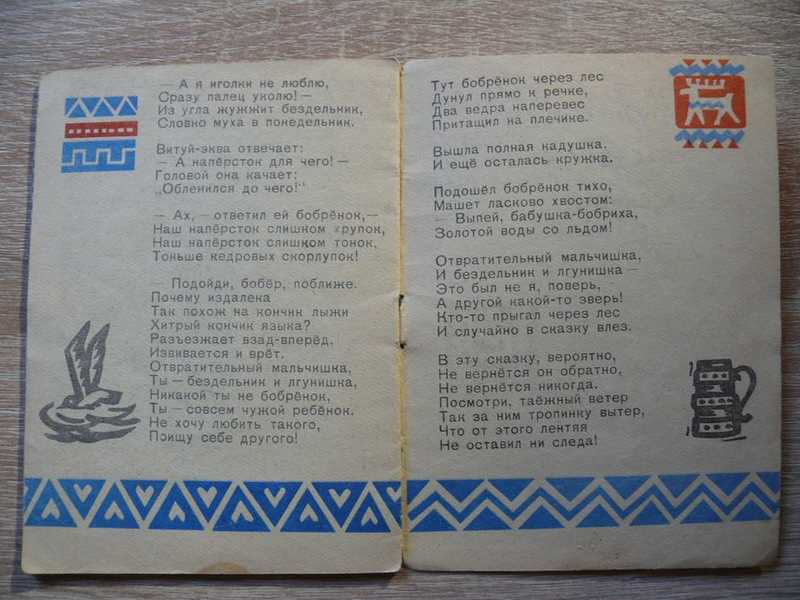 — А я иголки не люблю,
Сразу палец уколю! —
Из угла жужжит бездельник,
Словно муха в понедельник.
Витуй-эква отвечает:
— А напёрсток для чего! —
Головой она качает:
„Обленился до чего!“
— Ах, — ответил ей бобрёнок, —
Наш напёрсток слишком хрупок,
Наш напёрсток слишком тонок,
Тоньше кедровых скорлупок!
— Подойди, бобёр, поближе.
Почему издалека
Так похож на кончик лыжи
Хитрый кончик языка?
Разъезжает взад-вперёд,
Извивается и врёт.
Отвратительный мальчишка,
Ты — бездельник и лгунишка,
Никакой ты не бобрёнок,
Ты — совсем чужой ребёнок.
Не хочу любить такого,
Поищу себе другого!
Тут бобрёнок через лес
Дунул прямо к речке,
Два ведра наперевес
Притащил на плечике.
Вышла полная кадушка.
И ещё осталась кружка.
Подошёл бобрёнок тихо,
Машет ласково хвостом:
— Выпей, бабушка-бобриха,
Золотой воды со льдом!
Отвратительный мальчишка,
И бездельник и лгунишка —
Это был не я, поверь,
А другой какой-то зверь!
Кто-то прыгал через лес
И случайно в сказку влез.
В эту сказку, вероятно,
Не вернётся он обратно,
Не вернётся никогда.
Посмотри, таёжный ветер
Так за ним тропинку вытер,
Что от этого лентяя
Не оставил ни следа!